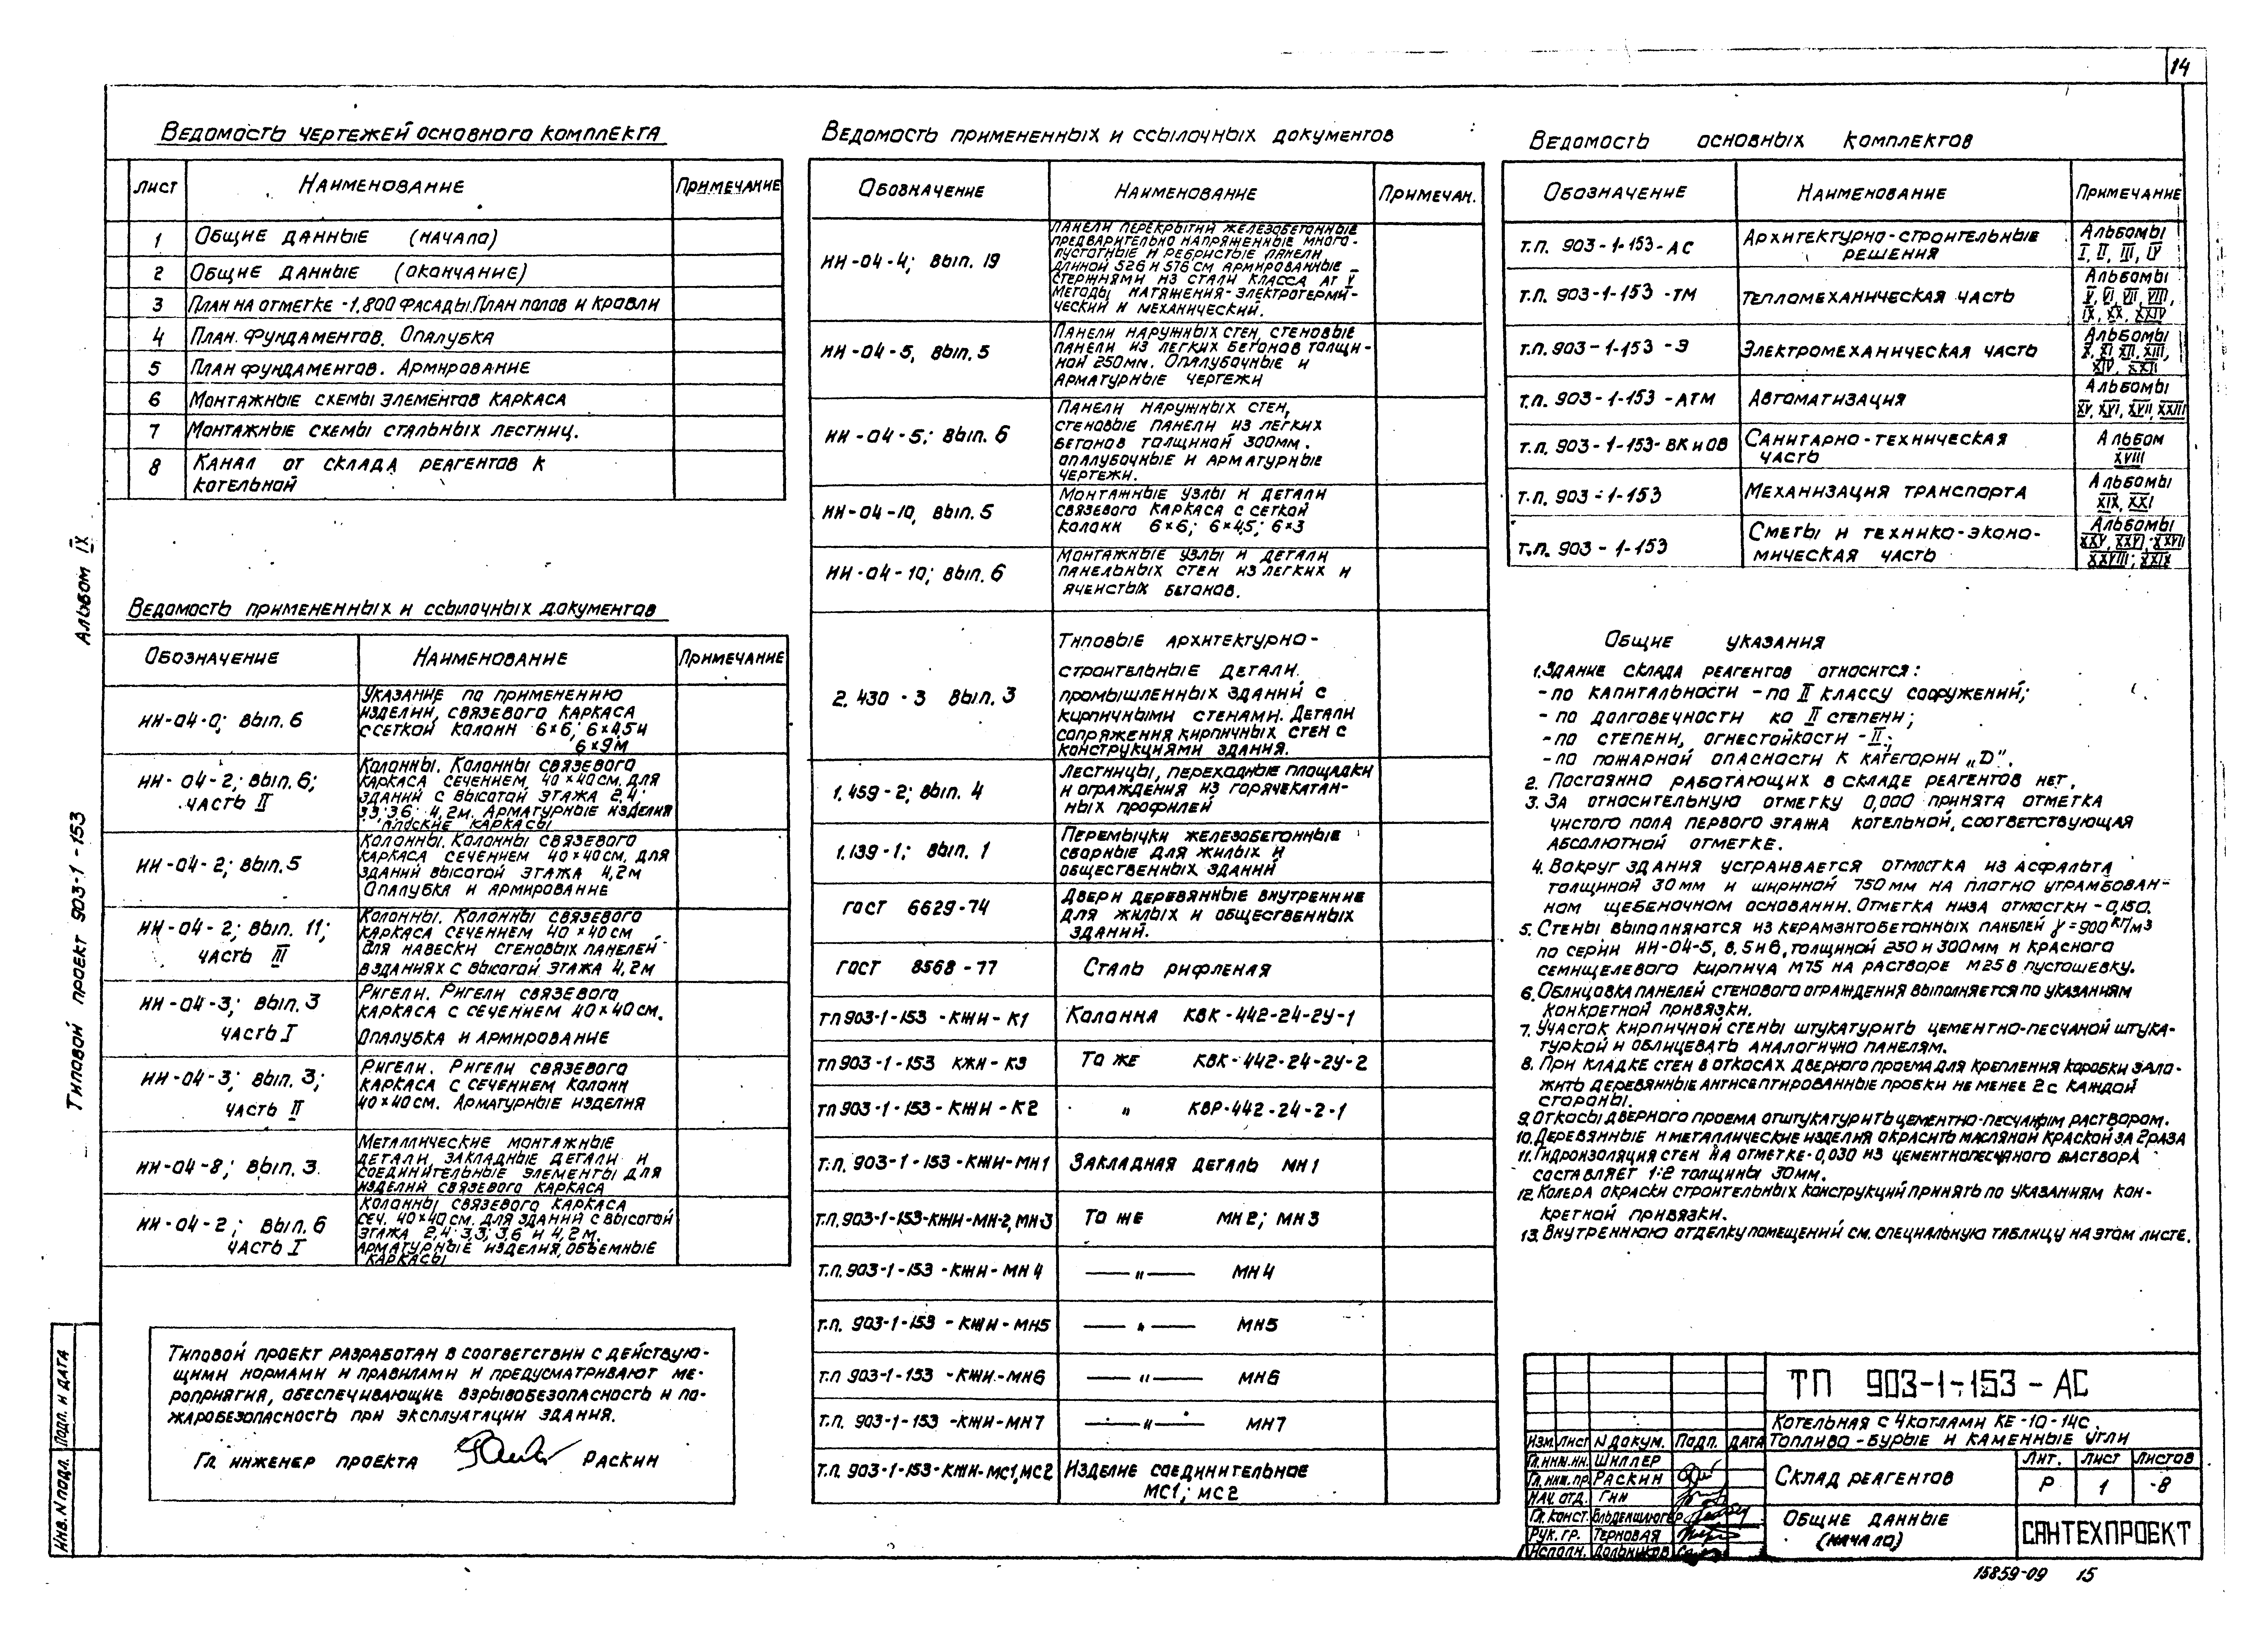 14
Ведомость чертежей основного комплекта
Лист Наименование Примечание
1 Общие данные (начало)
2 Общие данные (окончание)
3 План на отметке -1.800 Фасады. План полов и кровли
4 План фундаментов. Опалубка
5 План фундаментов. Армирование
6 Монтажные схемы элементов каркаса
7 Монтажные схемы стальных лестниц.
8 Канал от склада реагентов к
котельной
Ведомость примененных и ссылочных документов
Обозначение Наименование Примечание
ИИ-04-0; вып. 6
Указание по применению
изделий связевого каркаса
с сеткой колонн 6×6; 6×4,5 и
6×9м
ИИ-04-2; вып. 6;
часть II
Колонны. Колонны связевого
каркаса сечением 40×40см, для
зданий с высотой этажа 2,4;
3,3; 3,6; 4,2м. Арматурные изделия
плоские каркасы
ИИ-04-2; вып. 5
Колонны. Колонны связевого
каркаса сечением 40×40см, для
зданий высотой этажа 4,2м
Опалубка и армирование
ИИ-04-2; вып. 11;
часть III
Колонны. Колонны связевого
каркаса сечением 40×40см
для навески стеновых панелей
в зданиях с высотой этажа 4,2м
ИИ-04-3; вып. 3
часть I
Ригели. Ригели связевого
каркаса с сечением 40×40см.
Опалубка и армирование
ИИ-04-3; вып. 3;
часть II
Ригели. Ригели связевого
каркаса с сечением колонн
40×40см. Арматурные изделия
ИИ-04-8; вып. 3.
Металлические монтажные
детали, закладные детали и
соединительные элементы для
изделий связевого каркаса
ИИ-04-2; вып. 6
часть I
Колонны связевого каркаса
сеч. 40×40см. для зданий с высотой
этажа 2,4; 3,3; 3,6 и 4,2м.
Арматурные изделия, объемные
каркасы
Типовой проект разработан в соответствии с действую-
щими нормами и правилами и предусматривают ме-
роприятия, обеспечивающие взрывобезопасность и по-
жаробезопасность при эксплуатации здания.
Гл инженер проекта Раскин
Ведомость примененных и ссылочных документов
Обозначение Наименование Примечан.
ИИ-04-4; вып. 19
Панели перекрытий железобетонные
предварительно напряженные много-
пустотные и ребристые панели
длиной 526 и 576 см армированные
стержнями из стали класса Ат V
Методы натяжения-электротерми-
ческий и механический.
ИИ-04-5, вып. 5
Панели наружных стен, стеновые
панели из легких бетонов толщи-
ной 250мм. Опалубочные и
арматурные чертежи
ИИ-04-5; вып. 6
Панели наружных стен,
стеновые панели из легких
бетонов толщиной 300мм.
опалубочные и арматурные
чертежи.
ИИ-04-10, вып. 5
Монтажные узлы и детали
связевого каркаса с сеткой
колонн 6×6; 6×4,5; 6×3
ИИ-04-10; вып. 6
Монтажные узлы и детали
панельных стен из легких и
ячеистых бетонов.
2.430-3 вып. 3
Типовые архитектурно-
строительные детали.
промышленных зданий с
кирпичными стенами. Детали
сопряжения кирпичных стен с
конструкциями здания.
1.459-2; вып. 4
Лестницы, переходные площадки
и ограждения из горячекатан-
ных профилей
1.139-1; вып. 1
Перемычки железобетонные
сборные для жилых и
общественных зданий
ГОСТ 6629-74
Двери деревянные внутренние
для жилых и общественных
зданий.
ГОСТ 8568-77 Сталь рифленая
ТП 903-1-153-КЖИ-К1 Колонна КВК-442-24-2У-1
ТП 903-1-153 КЖИ-К3 То же КВК-442-24-2У-2
ТП 903-1-153-КЖИ-К2 " КВР-442-24-2-1
Т.П. 903-1-153-КЖИ-МН1 Закладная деталь МН1
Т.П. 903-1-153-КЖИ-МН-2, МН3 То же МН2; МН3
Т.П. 903-1-153-КЖИ-МН4 — " — МН4
Т.П. 903-1-153-КЖИ-МН5 — " — МН5
Т.П 903-1-153-КЖИ-МН6 — " — МН6
Т.П. 903-1-153-КЖИ-МН7 — " — МН7
Т.П. 903-1-153-КЖИ-МС1, МС2 Изделие соединительное
МС1; МС2
Ведомость основных комплектов
Обозначение Наименование Примечание
Т.П. 903-1-153-АС Архитектурно-строительные
решения
Альбомы
I, II, III, IV
Т.П. 903-1-153-ТМ Тепломеханическая часть
Альбомы
V, VI, VII, VIII,
IX, XX, XXIV
Т.П. 903-1-153-Э Электромеханическая часть
Альбомы
X, XI, XII, XIII,
XIV, XXII
Т.П. 903-1-153-АТМ Автоматизация
Альбомы
XV, XVI, XVII, XXIII
Т.П. 903-1-153-ВК и ОВ Санитарно-техническая
часть
Альбом
XVIII
Т.П. 903-1-153 Механизация транспорта
Альбомы
XIX, XXI
Т.П. 903-1-153 Сметы и технико-эконо-
мическая часть
Альбомы
XXV, XXVI; XXVII
XXVIII; XXIX
Общие указания
1. Здание склада реагентов относится:
-по капитальности -по II классу сооружений;
-по долговечности ко II степени;
-по степени, огнестойкости -II;
-по пожарной опасности к категории „D".
2. Постоянно работающих в складе реагентов нет.
3. За относительную отметку 0,000 принята отметка
чистого пола первого этажа котельной, соответствующая
абсолютной отметке.
4. Вокруг здания устраивается отмостка из асфальта
толщиной 30мм и шириной 750мм на плотно утрамбован-
ном щебеночном основании. Отметка низа отмостки -0,150.
5. Стены выполняются из керамзитобетонных панелей γ=900 кг/м3
по серии ИИ-04-5, в. 5 и 6, толщиной 250 и 300мм и красного
семищелевого кирпича М75 на растворе М25 в пустошевку.
6. Облицовка панелей стенового ограждения выполняется по указаниям
конкретной привязки.
7. Участок кирпичной стены штукатурить цементно-песчаной штука-
туркой и облицевать аналогично панелям.
8. При кладке стен в откосах дверного проема для крепления коробки зало-
жить деревянные антисептированные пробки не менее 2 с каждой
стороны.
9. Откосы дверного проема отштукатурить цементно-песчаным раствором.
10. Деревянные и металлические изделия окрасить масляной краской за 2 раза
11. Гидроизоляция стен на отметке-0,030 из цементнопесчаного раствора
составляет 1:2 толщины 30мм.
12. Колера окраски строительных конструкций принять по указаниям кон-
кретной привязки.
13. Внутреннюю отделку помещений см. специальную таблицу на этом листе.
Альбом IX
Типовой проект 903-1-153
Инв. N подл. Подп. и дата
ТП 903-1-153-АС
Котельная с 4 котлами КЕ-10-14С.
Топливо -бурые и каменные угли
Изм. Лист N докум. Подп. Дата
Гл. инж. ин. Шиллер
Гл. инж. пр. Раскин
Нач. отд. Гин
Гл. конст.
Рук. гр. Терновая
Исполн. Дольников
Склад реагентов
Лит. Лист Листов
Р 1 8
Общие данные
(начало)
САНТЕХПРОЕКТ
15859-09 15